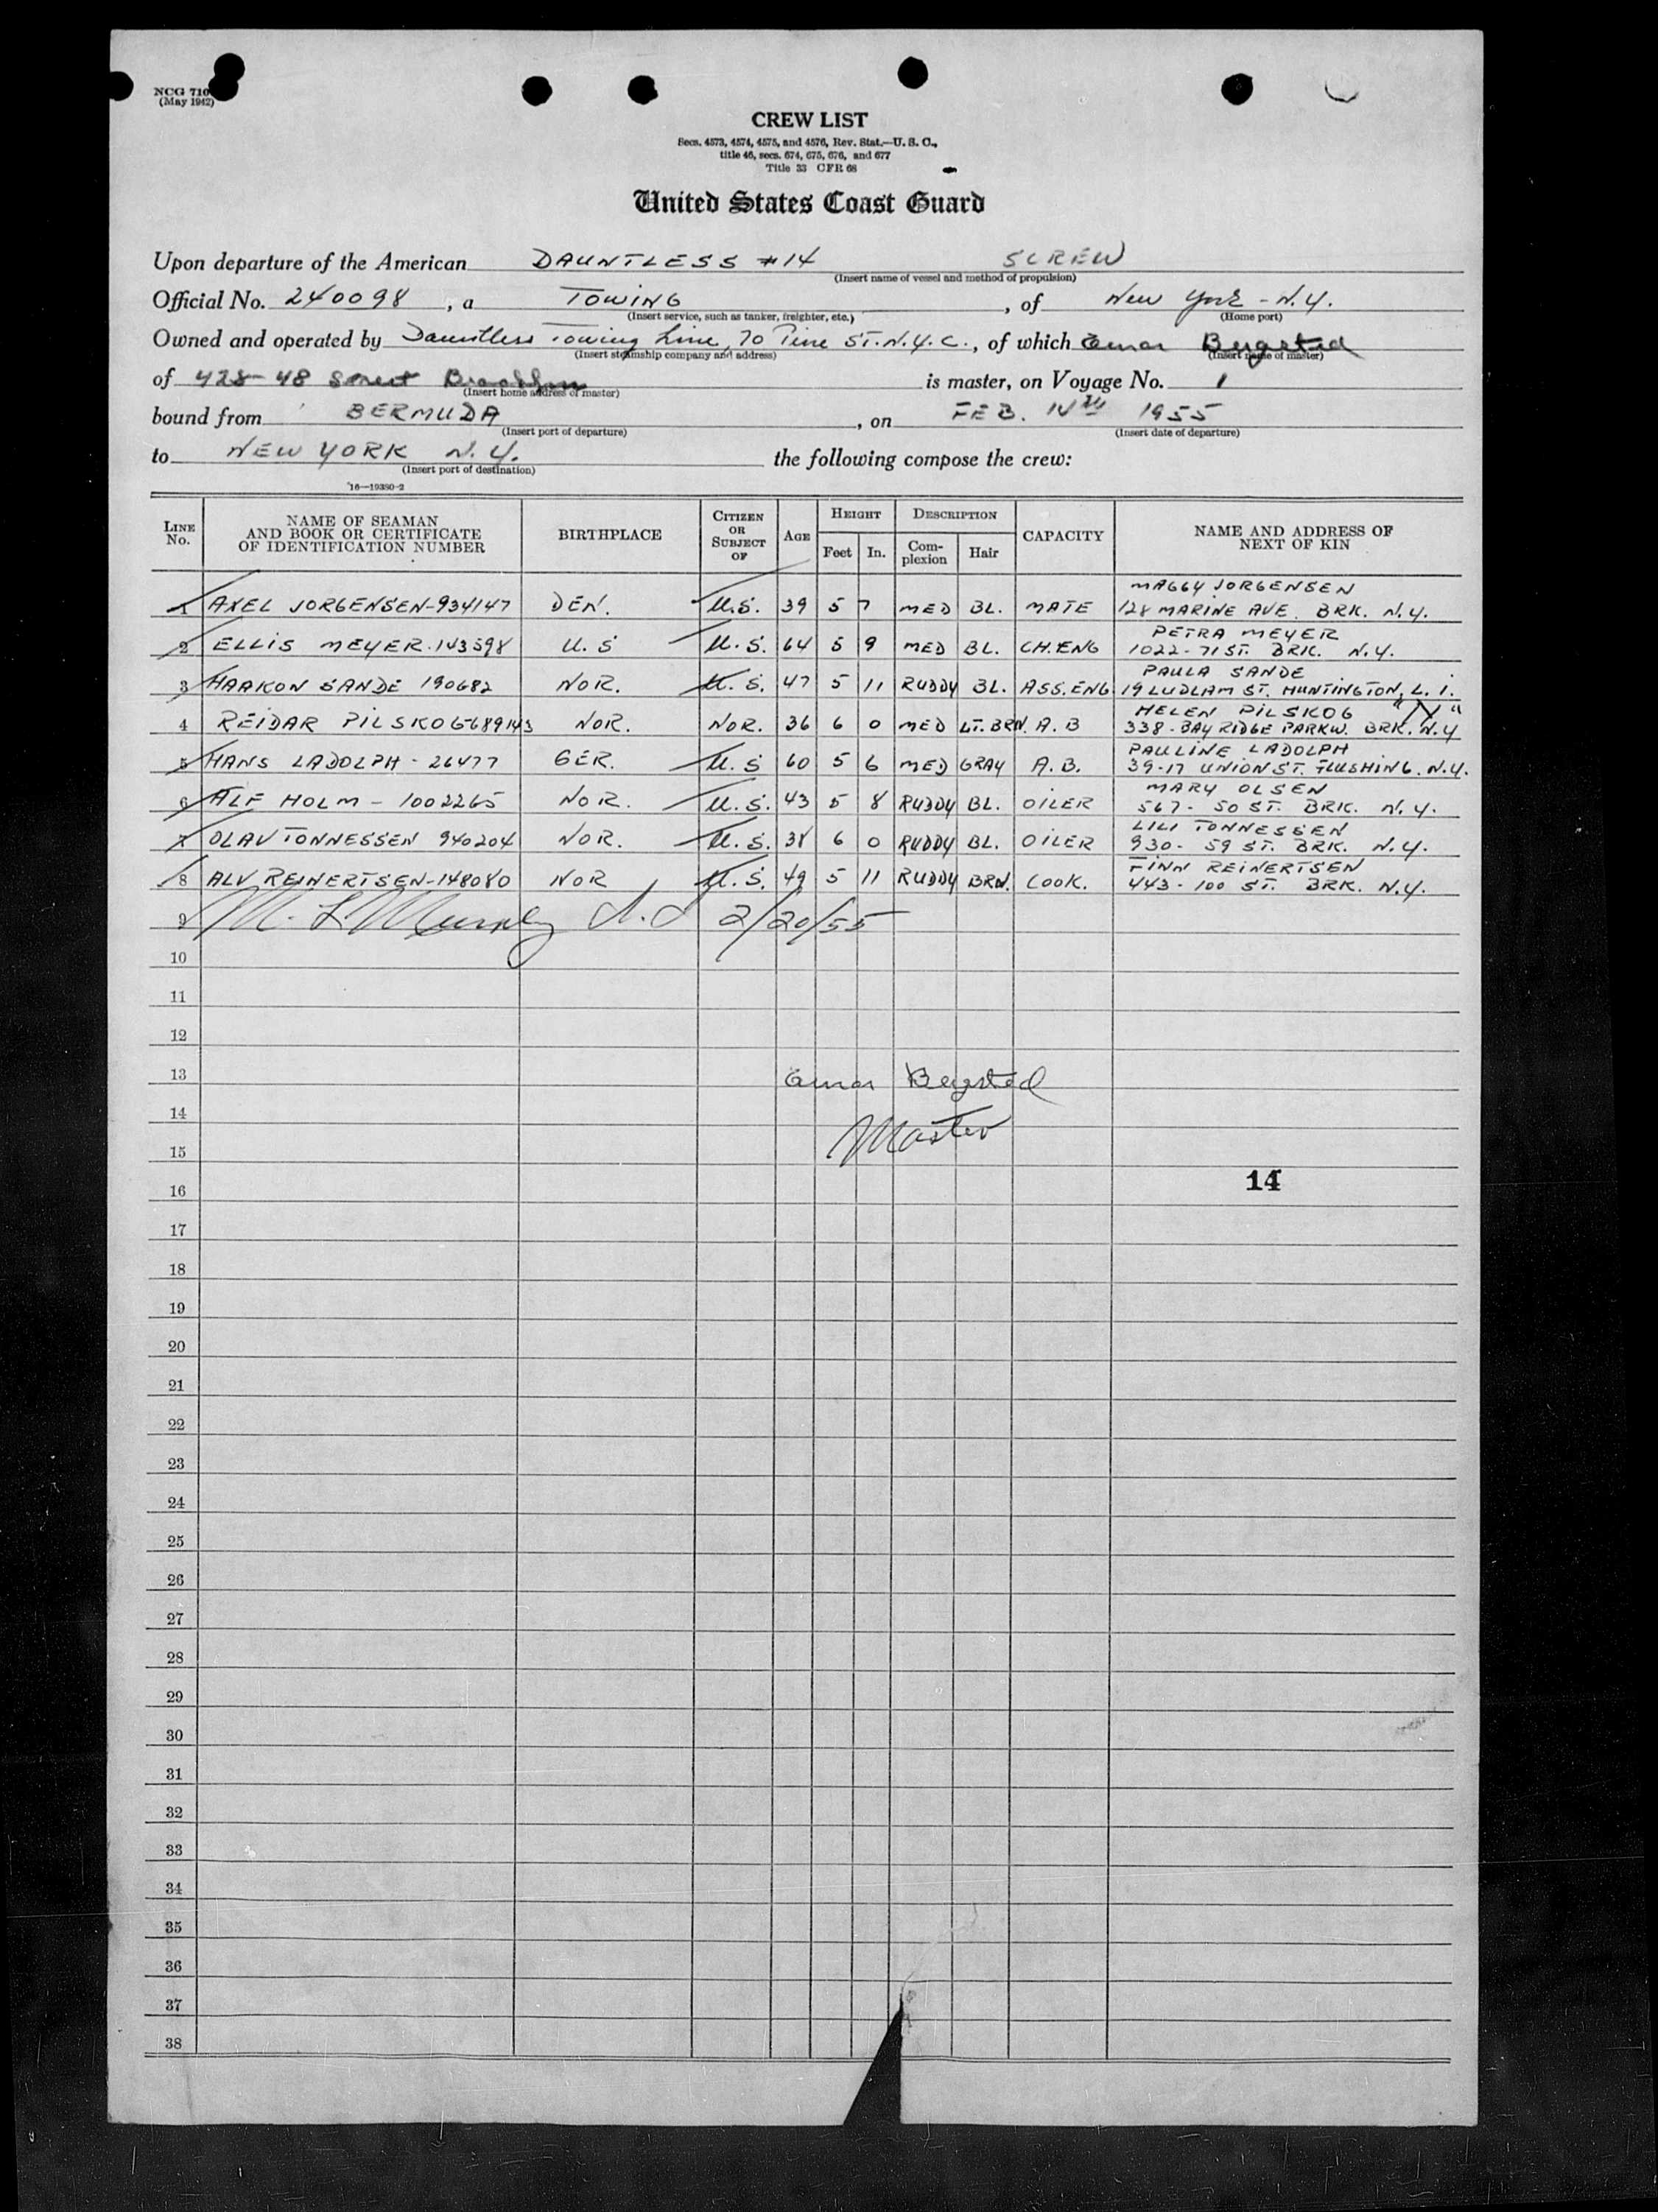 NCG 710
(May 1942)
CREW LIST
Secs. 4573, 4574, 4575, and 4576, Rev. Stat.—U. S. C.,
title 46, secs. 674, 675, 676, and 677
Title 33 CFR 68
United States Coast Guard
Upon departure of the American DAUNTLESS #14 SCREW
(Insert name of vessel and method of propulsion)
Official No. 240098, a TOWING, of New York - N.Y.
(Insert service, such as tanker, freighter, etc.) (Home port)
Owned and operated by Dauntless Towing Line, 70 Pine ST. N.Y.C., of which Einar Bergsted
(Insert steamship company and address) (Insert name of master)
of 428-48 Street Brooklyn is master, on Voyage No. 1
(Insert home address of master)
bound from BERMUDA, on FEB. 14th 1955
(Insert port of departure) (Insert date of departure)
to NEW YORK N.Y. the following compose the crew:
(Insert port of destination)
16—19380-2
LINE No. NAME OF SEAMAN AND BOOK OR CERTIFICATE OF IDENTIFICATION NUMBER BIRTHPLACE CITIZEN OR SUBJECT OF AGE HEIGHT Feet In. DESCRIPTION Complexion Hair CAPACITY NAME AND ADDRESS OF NEXT OF KIN
MAGGY JORGENSEN
1 AXEL JORGENSEN-934147 DEN. U.S. 39 5 7 MED BL. MATE 128 MARINE AVE. BRK. N.Y.
PETRA MEYER
2 ELLIS MEYER-143598 U.S U.S. 64 5 9 MED BL. CH.ENG 1022-71 ST. BRK. N.Y.
PAULA SANDE
3 HAAKON SANDE 190682 NOR. U.S. 47 5 11 RUDDY BL. ASS.ENG 19 LUDLAM ST. HUNTINGTON, L.I.
HELEN PILSKOG "N"
4 REIDAR PILSKOG-689143 NOR. NOR. 36 6 0 MED LT.BRN. A.B 338-BAY RIDGE PARKW. BRK. N.Y
PAULINE LADOLPH
5 HANS LADOLPH - 26477 GER. U.S 60 5 6 MED GRAY A.B. 39-17 UNION ST. FLUSHING. N.Y.
MARY OLSEN
6 ALF HOLM - 1002265 NOR. U.S. 43 5 8 RUDDY BL. OILER 567-50 ST. BRK. N.Y.
LILI TONNESSEN
7 OLAV TONNESSEN 940204 NOR. U.S. 38 6 0 RUDDY BL. OILER 930-59 ST. BRK. N.Y.
FINN REINERTSEN
8 ALV REINERTSEN-148080 NOR U.S. 49 5 11 RUDDY BRN. COOK. 443-100 ST. BRK. N.Y.
9 M. L. Murphy 2/20/55
10
11
12
13 Einar Bergsted
14 Master
15
14
16
17
18
19
20
21
22
23
24
25
26
27
28
29
30
31
32
33
34
35
36
37
38